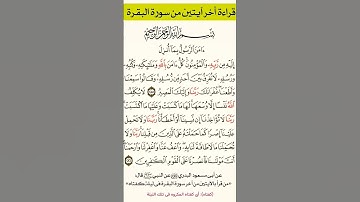 قراءة آخر آيتين من سورة البقرة
بِسْمِ اللَّهِ الرَّحْمَٰنِ الرَّحِيمِ
ءَامَنَ الرَّسُولُ بِمَا أُنزِلَ
إِلَيْهِ مِن رَّبِّهِ وَالْمُؤْمِنُونَ كُلٌّ ءَامَنَ بِاللَّهِ وَمَلَٰئِكَتِهِ وَكُتُبِهِ
وَرُسُلِهِ لَا نُفَرِّقُ بَيْنَ أَحَدٍ مِّن رُّسُلِهِ وَقَالُوا سَمِعْنَا
وَأَطَعْنَا غُفْرَانَكَ رَبَّنَا وَإِلَيْكَ الْمَصِيرُ ٢٨٥ لَا يُكَلِّفُ
اللَّهُ نَفْسًا إِلَّا وُسْعَهَا لَهَا مَا كَسَبَتْ وَعَلَيْهَا مَا اكْتَسَبَتْ
رَبَّنَا لَا تُؤَاخِذْنَا إِن نَّسِينَا أَوْ أَخْطَأْنَا رَبَّنَا وَلَا تَحْمِلْ
عَلَيْنَا إِصْرًا كَمَا حَمَلْتَهُ عَلَى الَّذِينَ مِن قَبْلِنَا رَبَّنَا وَلَا
تُحَمِّلْنَا مَا لَا طَاقَةَ لَنَا بِهِ وَاعْفُ عَنَّا وَاغْفِرْ لَنَا وَارْحَمْنَا
أَنتَ مَوْلَىٰنَا فَانصُرْنَا عَلَى الْقَوْمِ الْكَٰفِرِينَ ٢٨٦
عن أبي مسعود البدري عن النبي ﷺ قال:
«من قرأ بالآيتين من آخر سورة البقرة في ليلة كفتاه»
(كفتاه): أي كفتاه المكروه في تلك الليلة